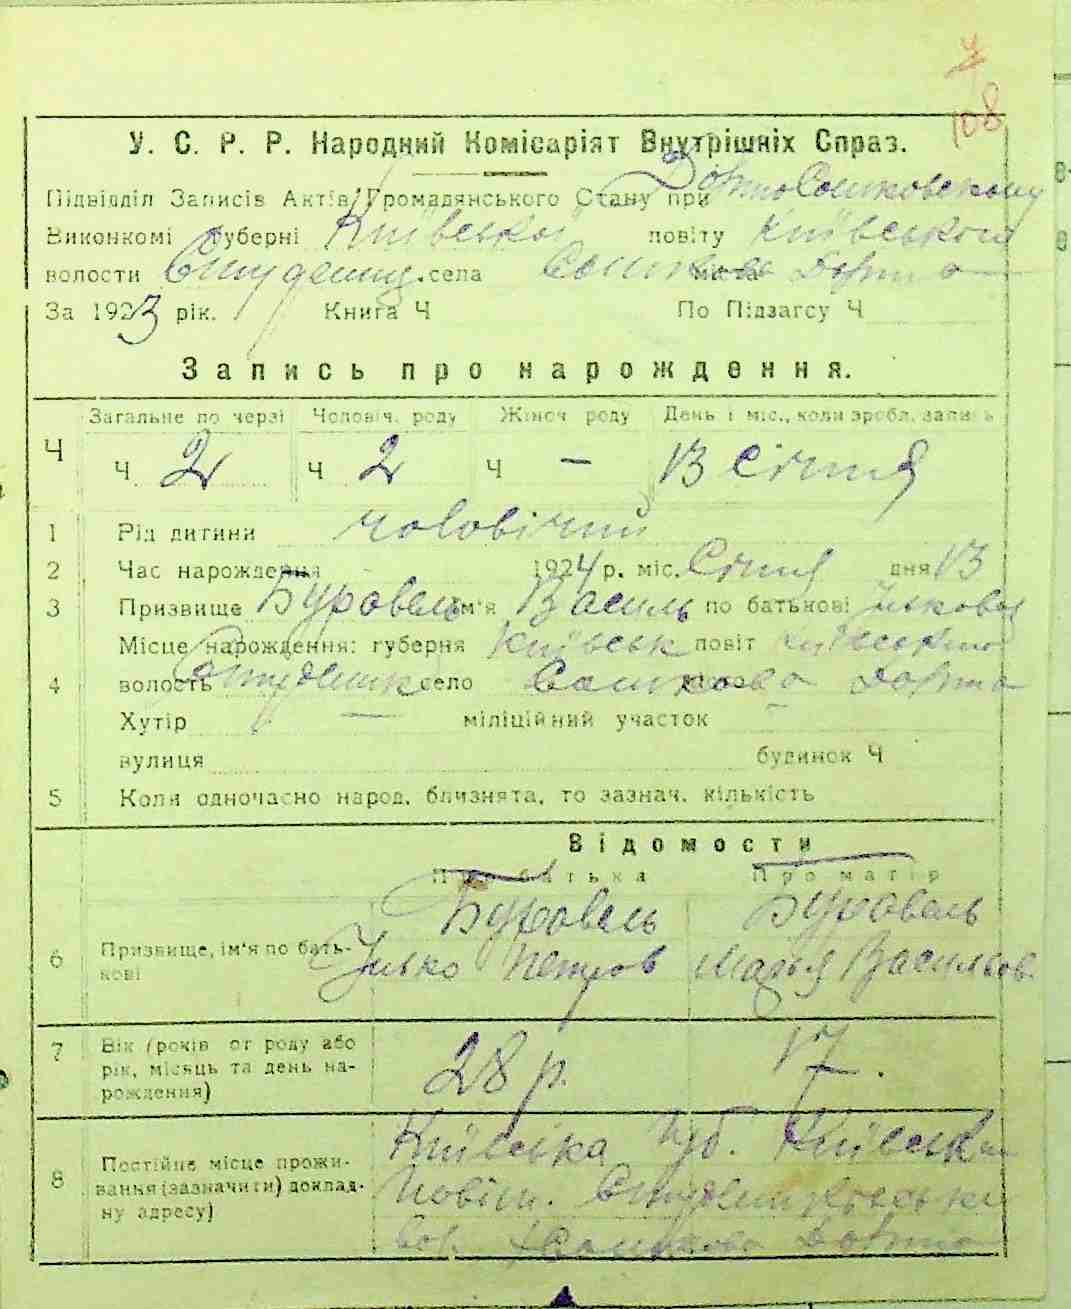 108
У. С. Р. Р. Народний Комісаріят Внутрішніх Справ.
Підвідділ Записів Актів Громадянського Стану при
Виконкомі губерні Київської повіту Київського
волости села
За 1923 рік. Книга Ч По Підзагсу Ч
Запись про народження.
Загальне по черзі Чоловіч. роду Жіноч роду День і міс., коли зробл. запись
Ч Ч 2 Ч 2 Ч — 13 Січня
1 Рід дитини чоловічий
2 Час народження 1924 р. міс. Січня дня 13
3 Призвище Буровель ім'я Василь по батькові
Місце народження: губерня Київськ повіт
4 волость село
Хутір — міліційний участок
вулиця будинок Ч
5 Коли одночасно народ. близнята, то зазнач. кількість
Відомости
Про батька Про матір
Буровель Буровель
6 Призвище, ім'я по бать-
кові
Илько Петров Марья Васильов
7 Вік (років от роду або
рік, місяць та день на-
рождения)
28 р. 17.
8 Постійне місце прожи-
вання (зазначити) доклад-
ну адресу)
Київська Губ. Київськ
Повіт.
Вол.